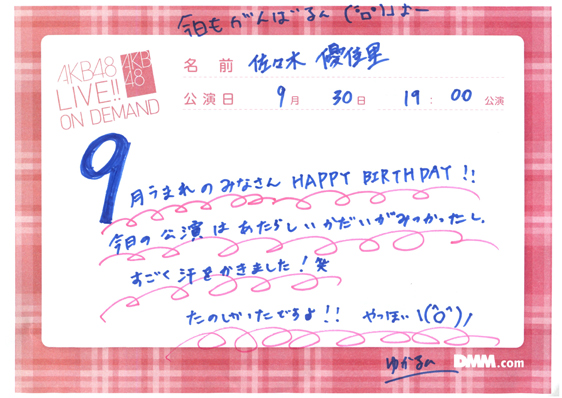 今日もがんばるん(˚ロ˚)」よー
AKB48
LIVE!!
ON DEMAND
AKB
48
名前 佐々木 優佳里
公演日 9月 30日 19:00公演
9月うまれのみなさん HAPPY BIRTHDAY!!
今日の公演はあたらしいかだいがみつかったし、
すごく汗をかきました!笑
たのしかったですよ!! やっほい \(^o^)/
ゆかるん
DMM.com